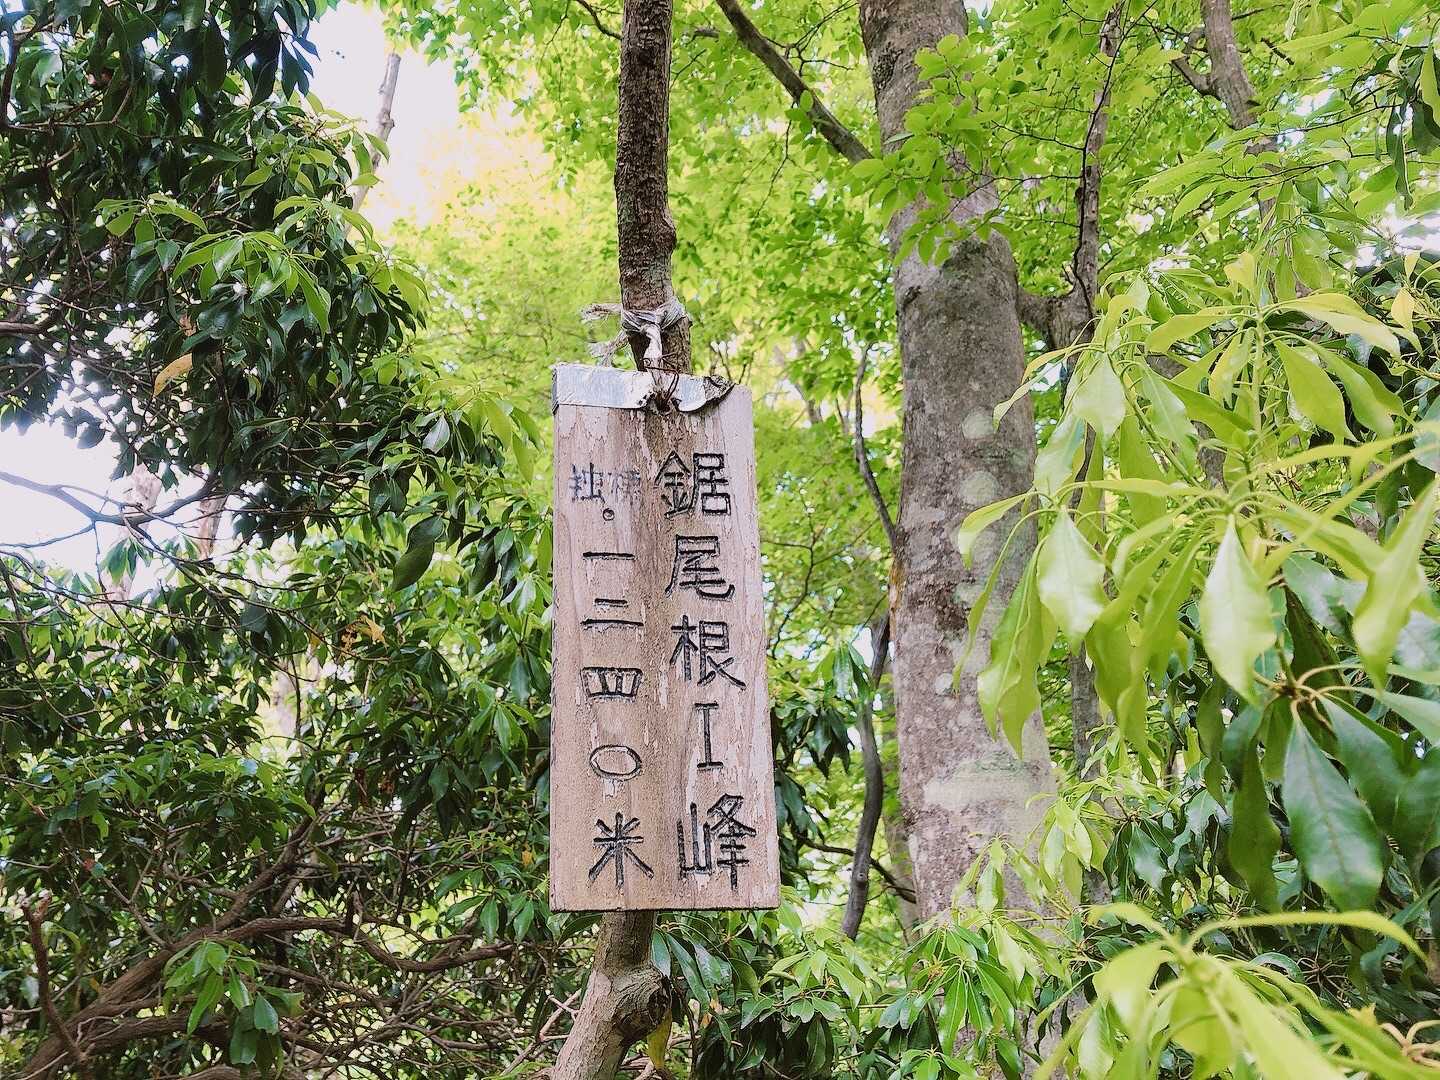 鋸尾根I峰
独標。一二四〇米